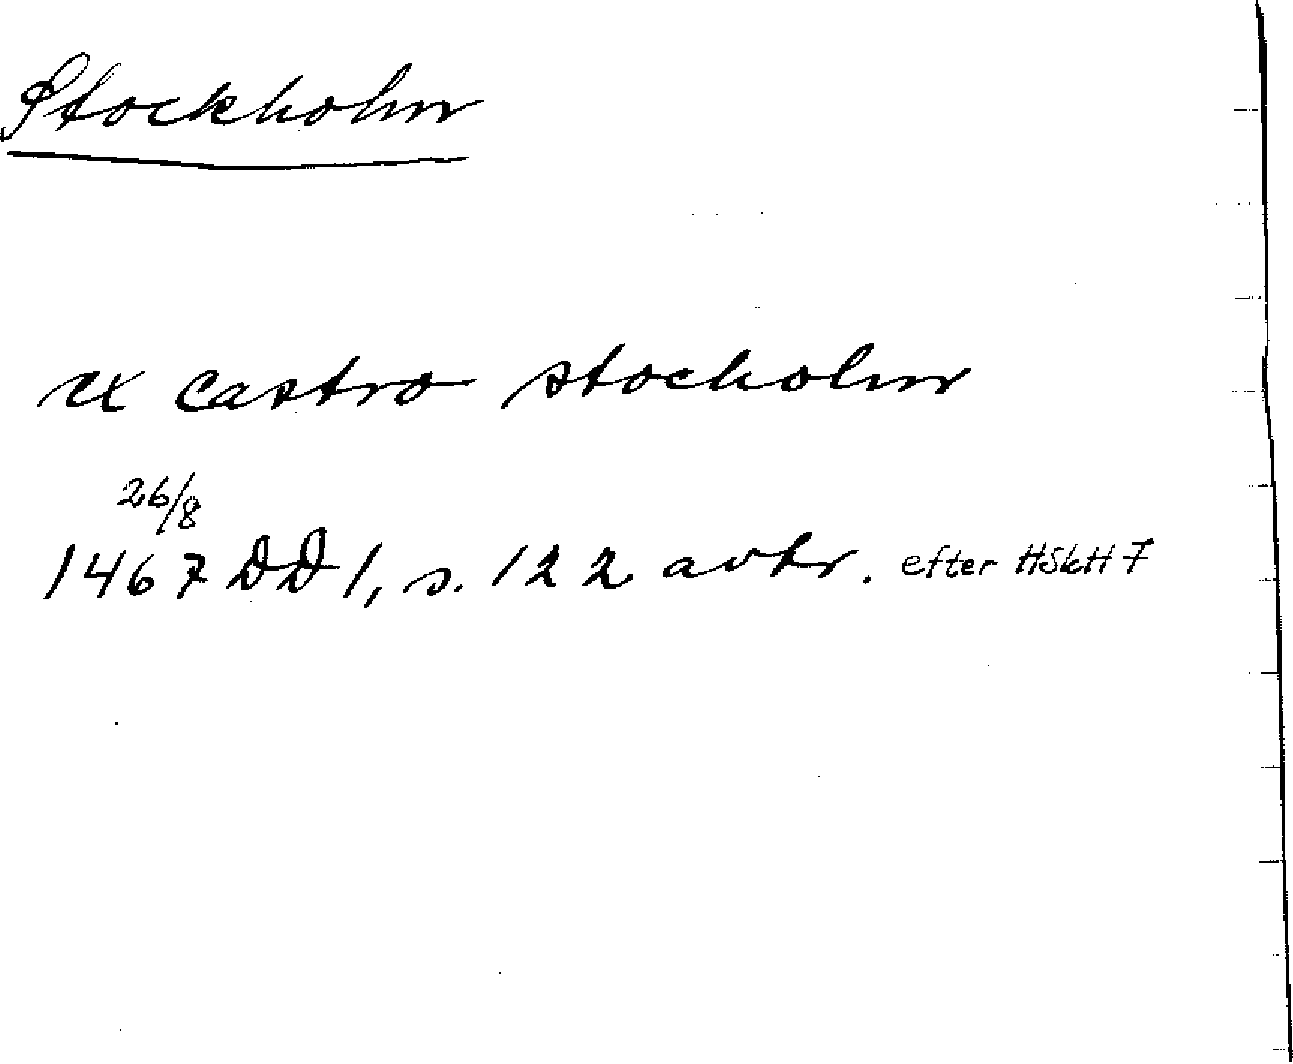 Stockholm
ex castro stocholm
26/8
1467 DD 1, s. 122 avskr. efter HSkH 7